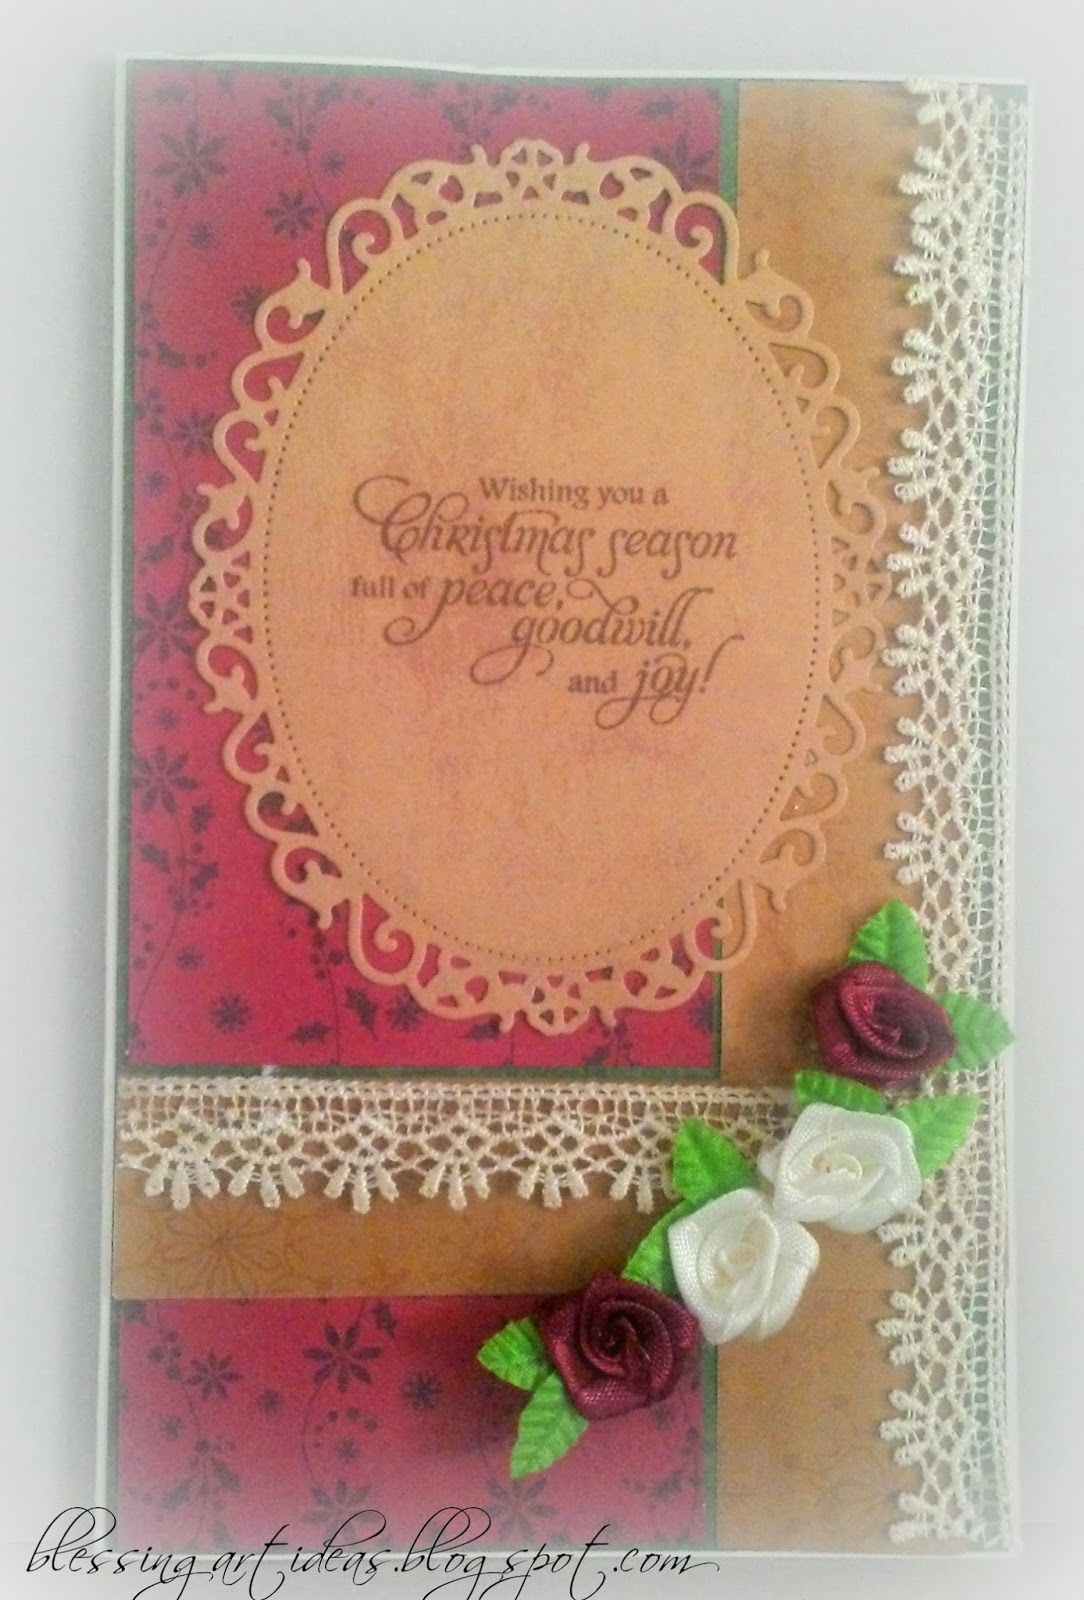 Wishing you a
Christmas season
full of peace,
goodwill,
and joy!
blessingartideas.blogspot.com